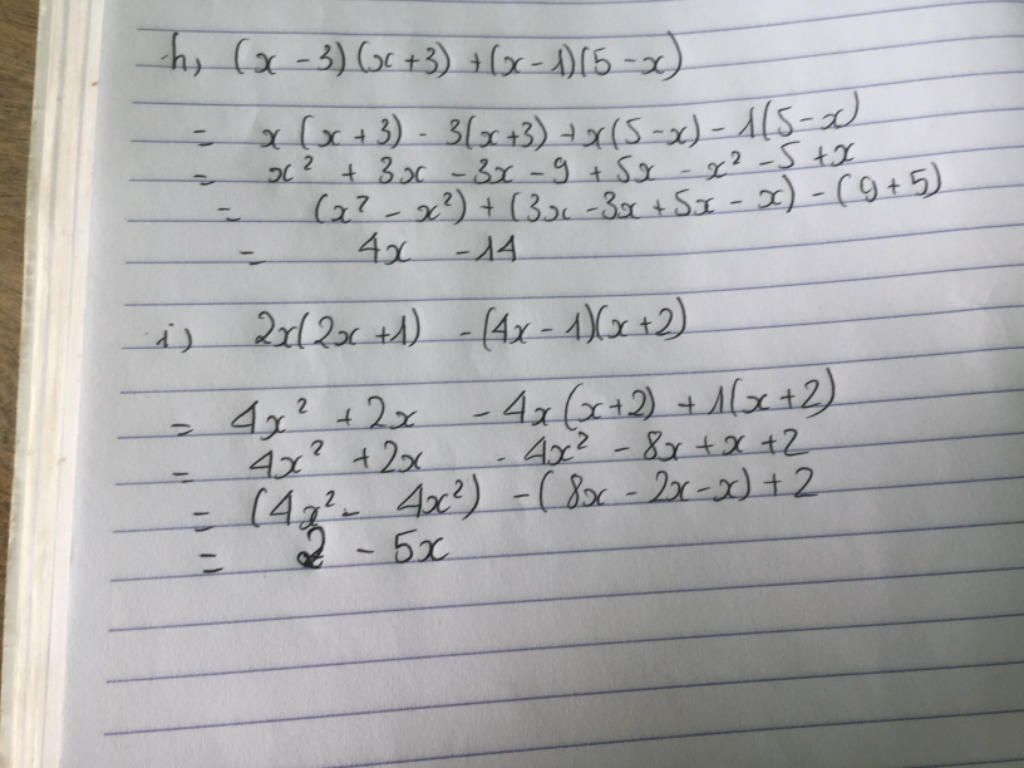 h, (x - 3)(x + 3) + (x - 1)(5 - x)
= x(x + 3) - 3(x + 3) + x(5 - x) - 1(5 - x)
= x² + 3x - 3x - 9 + 5x - x² - 5 + x
= (x² - x²) + (3x - 3x + 5x - x) - (9 + 5)
= 4x - 14
i) 2x(2x + 1) - (4x - 1)(x + 2)
= 4x² + 2x - 4x(x + 2) + 1(x + 2)
= 4x² + 2x - 4x² - 8x + x + 2
= (4x² - 4x²) - (8x - 2x - x) + 2
= 2 - 5x